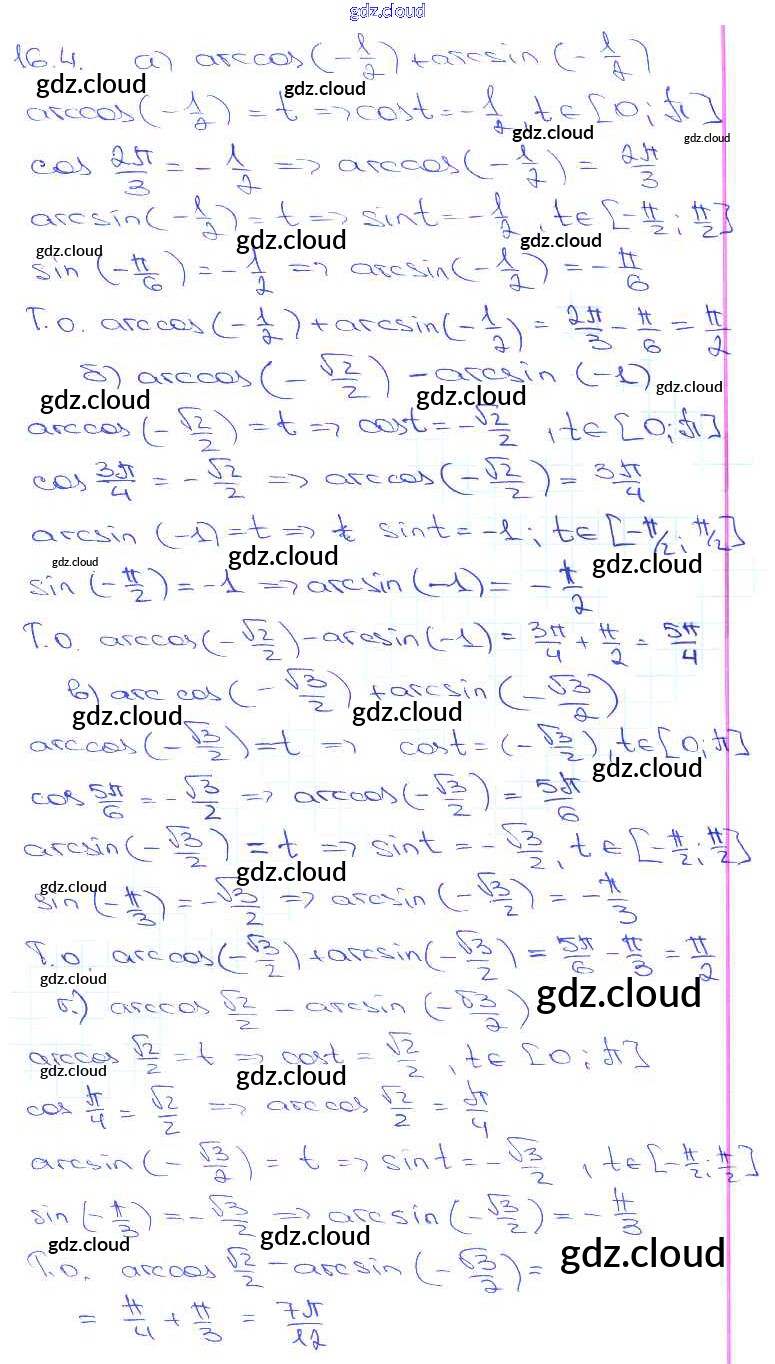 gdz.cloud
16.4. а) arccos(-1/2)+arcsin(-1/2)
gdz.cloud
arccos(-1/2) = t => cost = -1/2, t∈[0; π]
gdz.cloud gdz.cloud
cos 2π/3 = -1/2 => arccos(-1/2) = 2π/3
arcsin(-1/2) = t => sint = -1/2, t∈[-π/2; π/2]
gdz.cloud gdz.cloud gdz.cloud
sin(-π/6) = -1/2 => arcsin(-1/2) = -π/6
Т.о. arccos(-1/2)+arcsin(-1/2) = 2π/3 - π/6 = π/2
б) arccos(-√2/2) - arcsin(-1)
gdz.cloud gdz.cloud gdz.cloud
arccos(-√2/2) = t => cost = -√2/2, t∈[0; π]
cos 3π/4 = -√2/2 => arccos(-√2/2) = 3π/4
arcsin(-1) = t => t sint = -1; t∈[-π/2; π/2]
gdz.cloud gdz.cloud gdz.cloud
sin(-π/2) = -1 => arcsin(-1) = -π/2
Т.о. arccos(-√2/2) - arcsin(-1) = 3π/4 + π/2 = 5π/4
в) arccos(-√3/2) + arcsin(-√3/2)
gdz.cloud gdz.cloud
arccos(-√3/2) = t => cost = (-√3/2), t∈[0; π]
gdz.cloud
cos 5π/6 = -√3/2 => arccos(-√3/2) = 5π/6
arcsin(-√3/2) = t => sint = -√3/2, t∈[-π/2; π/2]
gdz.cloud gdz.cloud
sin(-π/3) = -√3/2 => arcsin(-√3/2) = -π/3
Т.о. arccos(-√3/2)+arcsin(-√3/2) = 5π/6 - π/3 = π/2
gdz.cloud gdz.cloud
г.) arccos √2/2 - arcsin(-√3/2)
arccos √2/2 = t => cost = √2/2, t∈[0; π]
gdz.cloud gdz.cloud
cos π/4 = √2/2 => arccos √2/2 = π/4
arcsin(-√3/2) = t => sint = -√3/2, t∈[-π/2; π/2]
sin(-π/3) = -√3/2 => arcsin(-√3/2) = -π/3
gdz.cloud gdz.cloud gdz.cloud
Т.о. arccos √2/2 - arcsin(-√3/2) =
= π/4 + π/3 = 7π/12